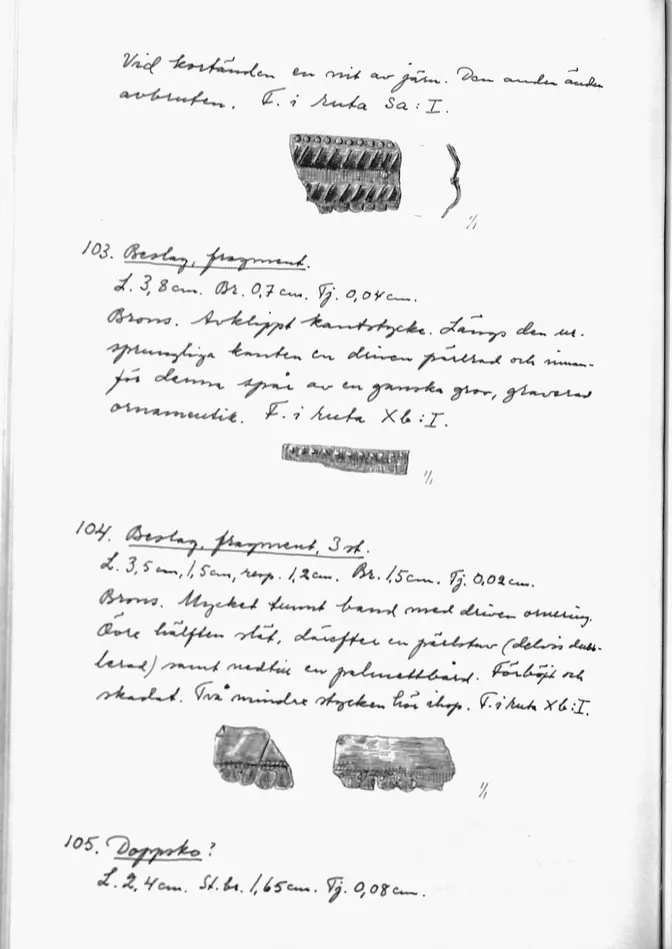 Vid kortänden en nit av järn. Den andra änden
avbruten. F. i ruta Sa: I.
1/1
103. Beslag, fragment.
L. 3,8 cm. Br. 0,7 cm. Tj. 0,04 cm.
Brons. Avklippt kantstycke. Längs den ur-
sprungliga kanten en driven pärlrad och innan-
för denna spår av en ganska grov, graverad
ornamentik. F. i ruta Xb: I.
1/1
104. Beslag, fragment, 3 st.
L. 3,5 cm, 1,5 cm, resp. 1,2 cm. Br. 1,5 cm. Tj. 0,02 cm.
Brons. Mycket tunnt band med driven ornering.
Övre hälften slät, därefter en pärlstav (delvis dub-
blerad) samt nedtill en palmettbård. Förböjt och
skadat. Två mindre stycken hör ihop. F. i ruta Xb: I.
1/1
105. Doppsko?
L. 2,4 cm. St. br. 1,65 cm. Tj. 0,08 cm.